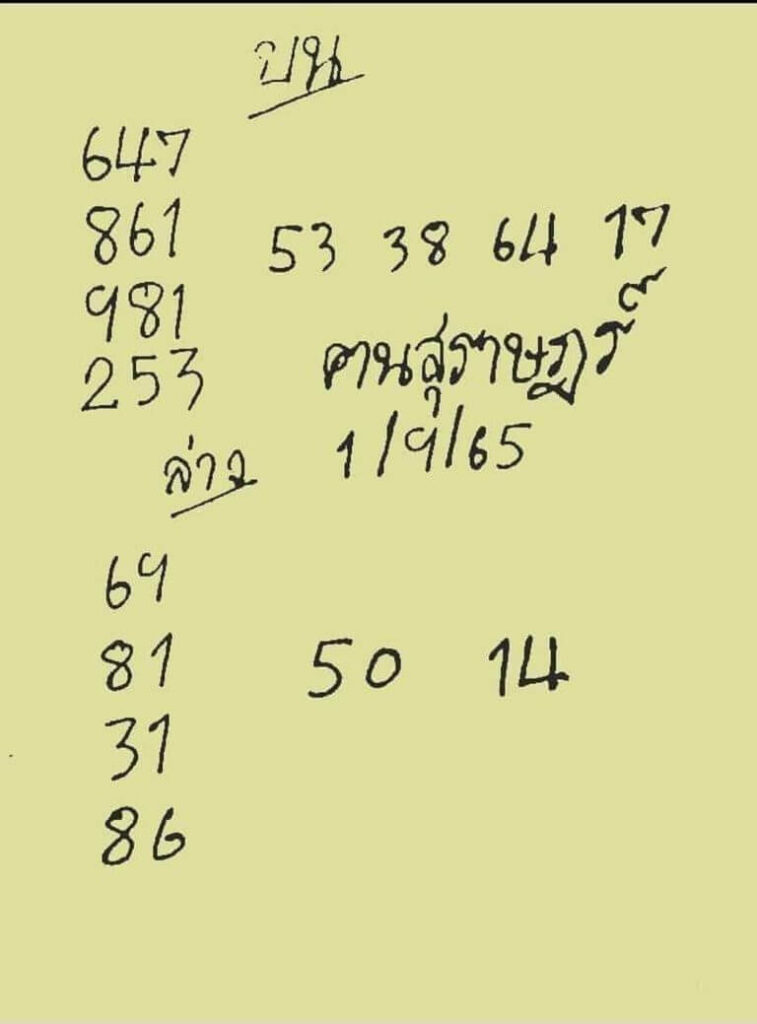 บน
647
861 53 38 64 17
981
253 คนสุราษฎร์
ล่าง 1/9/65
69
81 50 14
31
86